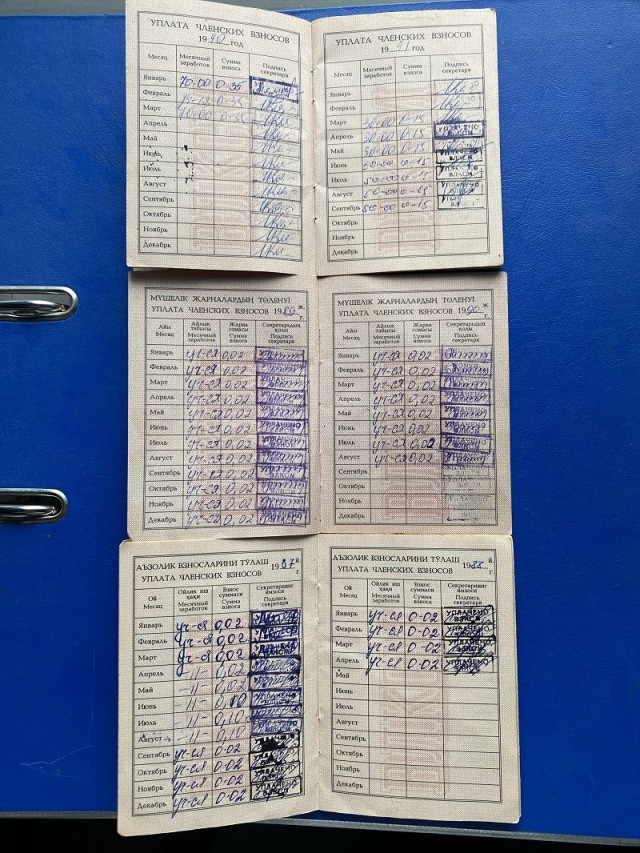 УПЛАТА ЧЛЕНСКИХ ВЗНОСОВ
1990 ГОД
Месяц Месячный заработок Сумма взноса Подпись секретаря
Январь 70-00 0-35
Февраль 0-35
Март 70-00 0-35
Апрель
Май
Июнь
Июль
Август
Сентябрь
Октябрь
Ноябрь
Декабрь
УПЛАТА ЧЛЕНСКИХ ВЗНОСОВ
1991 ГОД
Месяц Месячный заработок Сумма взноса Подпись секретаря
Январь
Февраль
Март 30-00 0-15
Апрель 30-00 0-15 УПЛАЧЕНО
Май 30-00 0-15
Июнь 50-00 0-15 УПЛАЧЕНО ВЛКСМ
Июль 50-00 0-15 ВЛКСМ
Август 50-00 0-15 УПЛАЧЕНО ВЛКСМ
Сентябрь 50-00 0-15 ВЛКСМ
Октябрь
Ноябрь
Декабрь
МҮШЕЛІК ЖАРНАЛАРДЫҢ ТӨЛЕНУІ ж.
УПЛАТА ЧЛЕНСКИХ ВЗНОСОВ 1989 г.
Айы Айлық табысы Жарна сомасы Секретардың қолы
Месяц Месячный заработок Сумма взноса Подпись секретаря
Январь уч-ся 0,02
Февраль уч-ся 0,02
Март уч-ся 0,02
Апрель уч-ся 0,02
Май уч-ся 0,02
Июнь уч-ся 0,02
Июль уч-ся 0,02
Август уч-ся 0,02
Сентябрь уч-ся 0,02
Октябрь уч-ся 0,02
Ноябрь уч-ся 0,02
Декабрь уч-ся 0,02
МҮШЕЛІК ЖАРНАЛАРДЫҢ ТӨЛЕНУІ ж.
УПЛАТА ЧЛЕНСКИХ ВЗНОСОВ 1990 г.
Айы Айлық табысы Жарна сомасы Секретардың қолы
Месяц Месячный заработок Сумма взноса Подпись секретаря
Январь уч-ся 0,02
Февраль уч-ся 0,02
Март уч-ся 0,02
Апрель уч-ся 0,02
Май уч-ся 0,02
Июнь уч-ся 0,02
Июль уч-ся 0,02
Август уч-ся 0,02
Сентябрь
Октябрь
Ноябрь
Декабрь
АЪЗОЛИК ВЗНОСЛАРИНИ ТЎЛАШ й.
УПЛАТА ЧЛЕНСКИХ ВЗНОСОВ 1987 г.
Ой Ойлик иш ҳақи Взнос суммаси Секретарнинг имзоси
Месяц Месячный заработок Сумма взноса Подпись секретаря
Январь уч-ся 0,02
Февраль уч-ся 0,02
Март уч-ся 0,02
Апрель -11- 0,02
Май -11- 0,02
Июнь -11- 0,10
Июль -11- 0,10
Август -11- 0,10
Сентябрь уч-ся 0-02
Октябрь уч-ся 0-02
Ноябрь уч-ся 0-02
Декабрь уч-ся 0-02
АЪЗОЛИК ВЗНОСЛАРИНИ ТЎЛАШ й.
УПЛАТА ЧЛЕНСКИХ ВЗНОСОВ 1988 г.
Ой Ойлик иш ҳақи Взнос суммаси Секретарнинг имзоси
Месяц Месячный заработок Сумма взноса Подпись секретаря
Январь уч-ся 0-02 УПЛАЧЕНО
Февраль уч-ся 0-02 УПЛАЧЕНО
Март уч-ся 0-02 УПЛАЧЕНО
Апрель уч-ся 0-02 УПЛАЧЕНО
Май
Июнь
Июль
Август
Сентябрь
Октябрь
Ноябрь
Декабрь